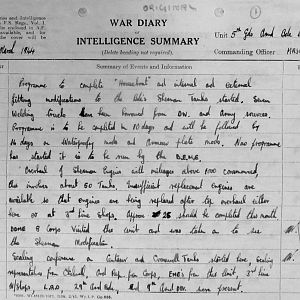 ORIGINAL
WAR DIARY
or
INTELLIGENCE SUMMARY
(Delete heading not required).
Unit 5th Gds Armd Bde
Commanding Officer
March 1944
Summary of Events and Information
Programme to complete "Homebount" and internal and external
fitting modifications to the Bde's Sherman Tanks started. Seven
Welding trucks have been borrowed from DW. and Army sources.
Programme is to be completed in 10 days and will be followed by
14 days on Waterproofing mods and Armour plate mods. New programme
has started it is to be run by the D.E.M.E.
Overhaul of Sherman Engines with mileages above 1000 commenced,
this involves about 50 Tanks. Insufficient replacement engines are
available so that engines are being replaced after top overhaul either
here or at 3rd line shops. Approx 25 should be completed this month
DDME 8 Corps Visited this unit and was taken on to see
the Sherman Modification.
Sealing conference on Centaur and Cromwell Tanks started here, Sealing
representatives from Chilwell, and Rep. from Corps, EMEs from this Unit, 3rd line
W/shops, L.A.D., 29th Armd Bde, and 9th Armd Div. were present.